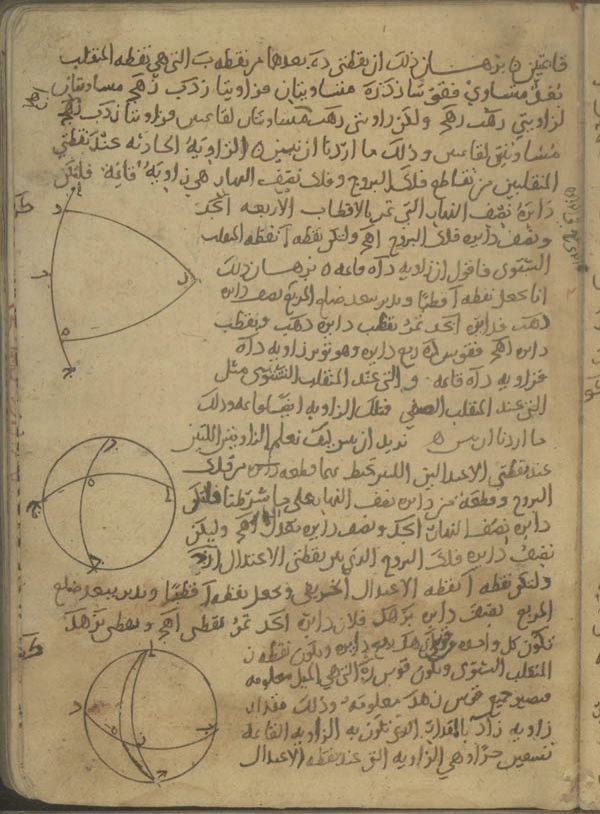 قائمتين ه برهان ذلك ان نقطتي د ه بعدهما من نقطه ب التي هي نقطه المنقلب
بعد متساوي فقوسا ز د ز ه متساويتان فزاويتا ز د ب ز ه ج متساويتان
لزاويتي ز ه ب ز ه ج ولكن زاويتي ز ه ب مساويتان لقائمتين فزاويتا ز د ب ز ه ج
مساويتين لقائمتين وذلك ما اردنا ان نبين ه الزاويه الحادثه عند نقطتي
المنقلبين من تقاطع فلك البروج وفلك نصف النهار هي زاويه قائمة فلتكن
دايرة نصف النهار التي تمر بالاقطاب الاربعه ا ب ج د
ونصف دايره فلك البروج ا ه ج ولتكن نقطه ا نقطه المنقلب
الشتوى فاقول ان زاويه د ا ه قائمه ه برهان ذلك
انا نجعل نقطه ا قطبا وندير ببعد ضلع المربع نصف دايره
د ه ب فدايرة ا ب ج د تمر بقطب دايرة د ه ب وبقطب
دايره ا ه ج فقوس د ه ربع دايره وهو يوتر زاويه د ا ه
فزاويه د ا ه قائمه والتي عند المنقلب الشتوى مثل
التي عند المنقلب الصيفي فتلك الزاويه ايضا قائمه وذلك
ما اردنا ان نبين ه نريد ان نبين كيف نعلم الزاويتين اللتين
عند نقطتي الاعتدالين اللتين تحيط بهما قطعه دايره من فلك
البروج وقطعه من دايره نصف النهار على ما شرطنا فلتكن
دايره نصف النهار ا ب ج د ونصف دايره معدل النهار ا ه ج وليكن
نصف دايره فلك البروج الذي يمر بنقطتي الاعتدال ا ز ج
ولتكن نقطه ا نقطه الاعتدال الخريفي ونجعل نقطه ا قطبا وندير ببعد ضلع
المربع نصف دايره ب ز ه د فلان دايره ا ب ج د تمر بقطبي ا ه ج وبقطبي ب ز ه د
تكون كل واحده من قوسي ا ز ه د ربع دايره وتكون نقطه ز
المنقلب الشتوى وتكون قوس ز ه التي هي الميل معلومه
فتصير جميع قوس ز ه د معلومه وذلك مقدار
زاويه ز ا د بالمقدار الذي تكون به الزاويه القائمه
تسعين جزءا وهي الزاويه التي عند نقطه الاعتدال